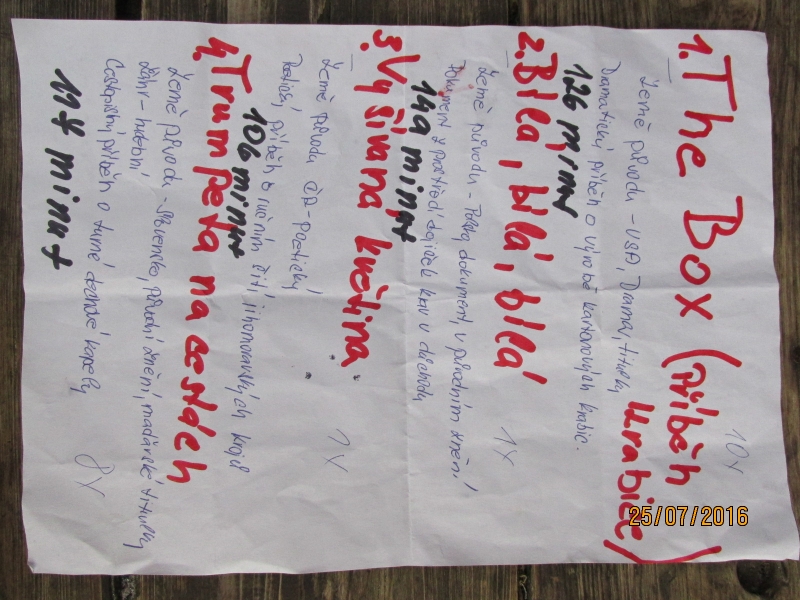 10x
1. The Box (příběh
krabice)
Země původu - USA, Drama, titulky
Dramatický příběh o výrobě kartonových krabic.
126 minut
2. Bílá, bílá, bílá
1x
Země původu - Polský dokument, v původním znění
Dokument z prostředí dojiček krav v důchodu
149 minut
3. Vyšívaná květina
1x
Země původu ČR - Poetický
příběh o ručním šití, jihomoravských krajů
106 minut
4. Trumpeta na cestách
8x
Země původu - Slovensko, původní znění, maďarské titulky
Žánr - hudební
Cestopisný příběh o turné dechové kapely
117 minut
25/07/2016